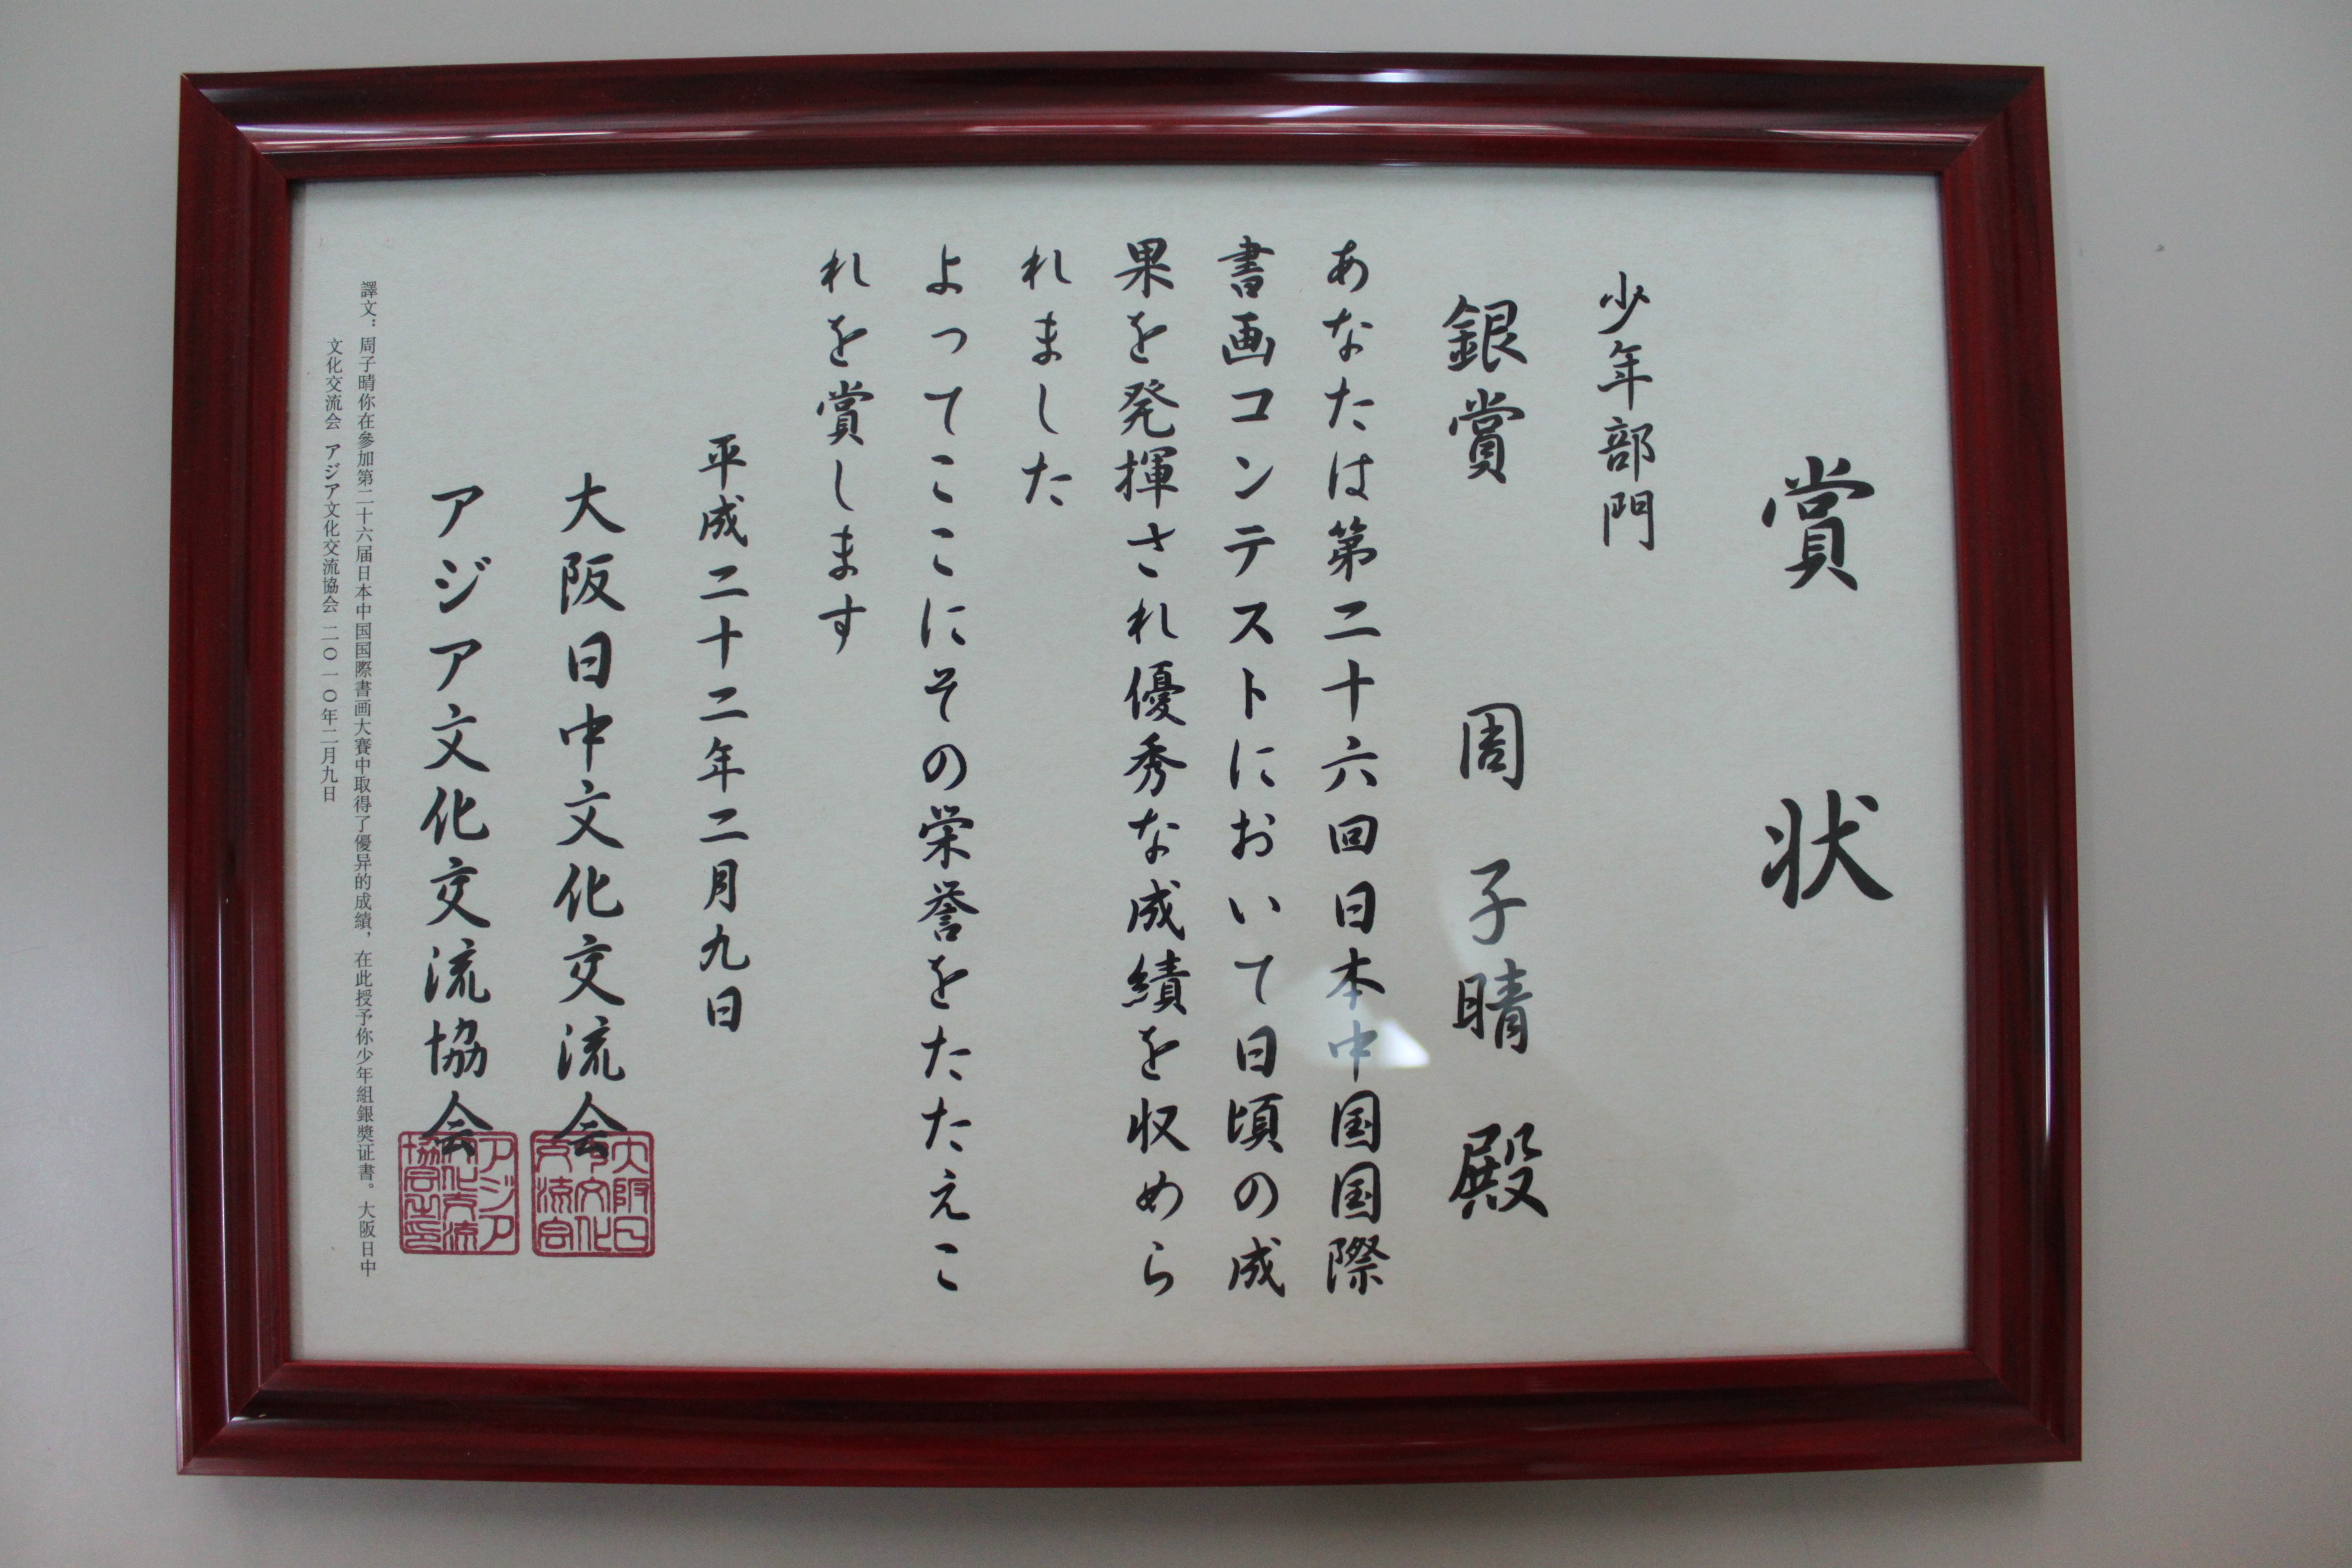 賞状
少年部門
銀賞 周子晴殿
あなたは第二十六回日本中国国際
書画コンテストにおいて日頃の成
果を発揮され優秀な成績を収めら
れました
よってここにその栄誉をたたえこ
れを賞します
平成二十二年二月九日
大阪日中文化交流会
アジア文化交流協会
大阪日中文化交流会
アジア文化交流協会之印
譯文：周子晴你在參加第二十六届日本中国国際書画大賽中取得了優异的成績，在此授予你少年組銀獎证書。大阪日中
文化交流会 アジア文化交流協会 二〇一〇年二月九日